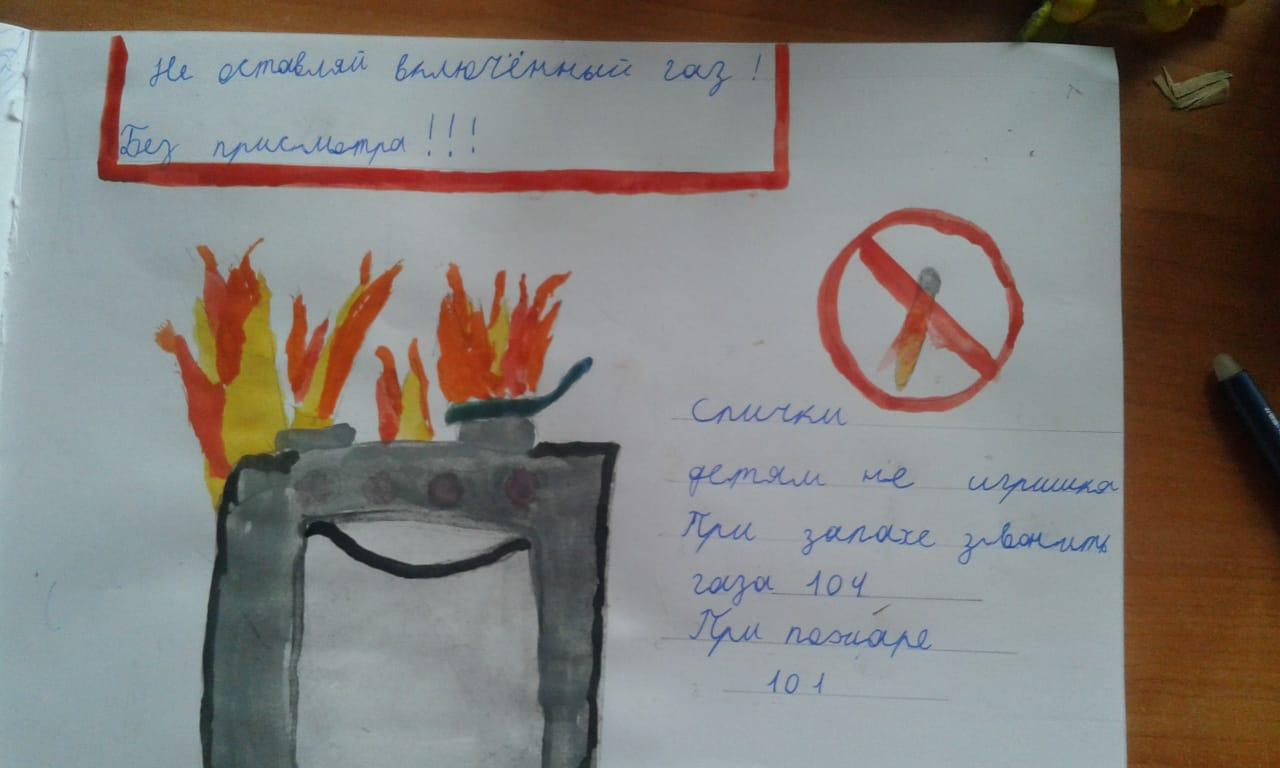 Не оставляй включённый газ!
Без присмотра!!!
Спички
детям не игрушка
При запахе звонить
газа 104
При пожаре
101